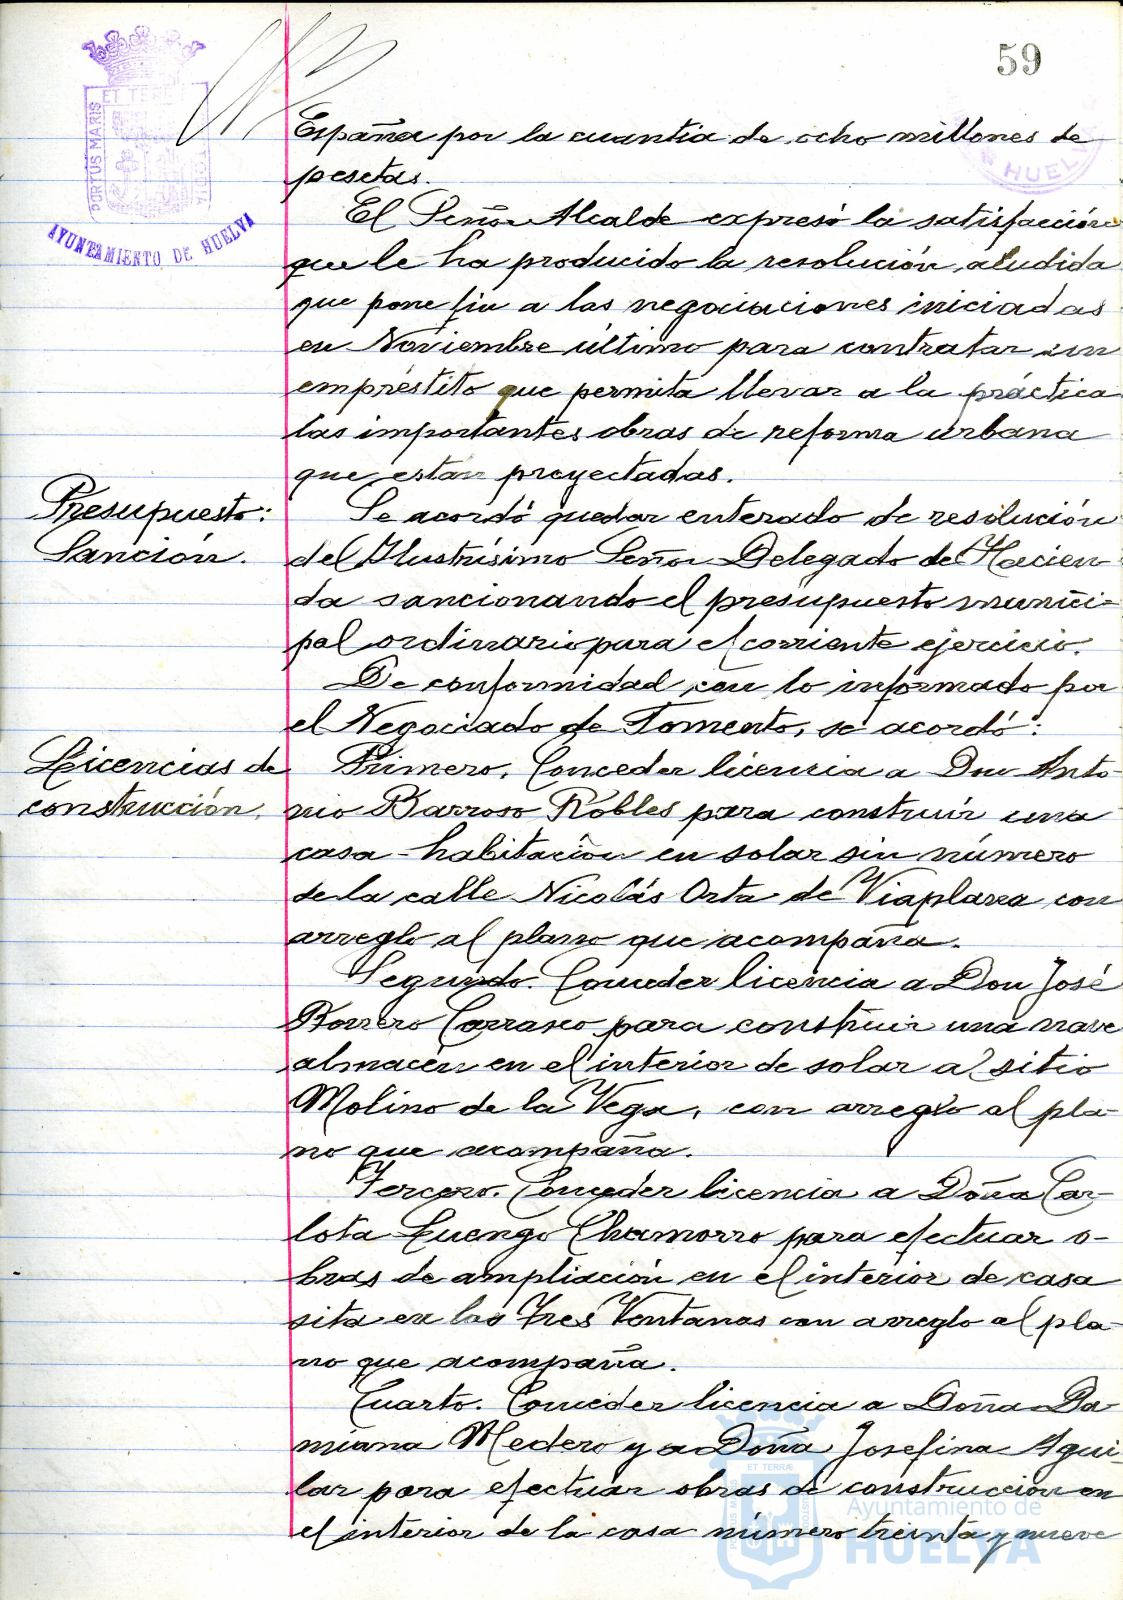 59
PORTUS MARIS
ET TERRÆ
AYUNTAMIENTO DE HUELVA
HUELV
España por la cuantia de ocho millones de
pesetas.
El Señor Alcalde expresó la satisfacción
que le ha producido la resolución aludida
que pone fin a las negociaciones iniciadas
en Noviembre último para contratar un
empréstito que permita llevar a la práctica
las importantes obras de reforma urbana
que estan proyectadas.
Presupuesto:
Sanción.
Se acordó quedar enterado de resolución
del Ilustrísimo Señor Delegado de Hacien-
da sancionando el presupuesto munici-
pal ordinario para el corriente ejercicio.
De conformidad con lo informado por
el Negociado de Fomento, se acordó:
Licencias de
construcción.
Primero. Conceder licencia a Don Anto-
nio Barroso Robles para construir una
casa-habitación en solar sin número
de la calle Nicolás Orta de Viaplana con
arreglo al plano que acompaña.
Segundo. Conceder licencia a Don José
Borrero Carrasco para construir una nave
almacén en el interior de solar al sitio
Molino de la Vega, con arreglo al pla-
no que acompaña.
Tercero. Conceder licencia a Doña Car-
lota Luengo Chamorro para efectuar o-
bras de ampliación en el interior de casa
sita en las Tres Ventanas con arreglo al pla-
no que acompaña.
Cuarto. Conceder licencia a Doña Da-
miana Medero y a Doña Josefina Agui-
lar para efectuar obras de construcción en
el interior de la casa número treinta y nueve
Ayuntamiento de
HUELVA